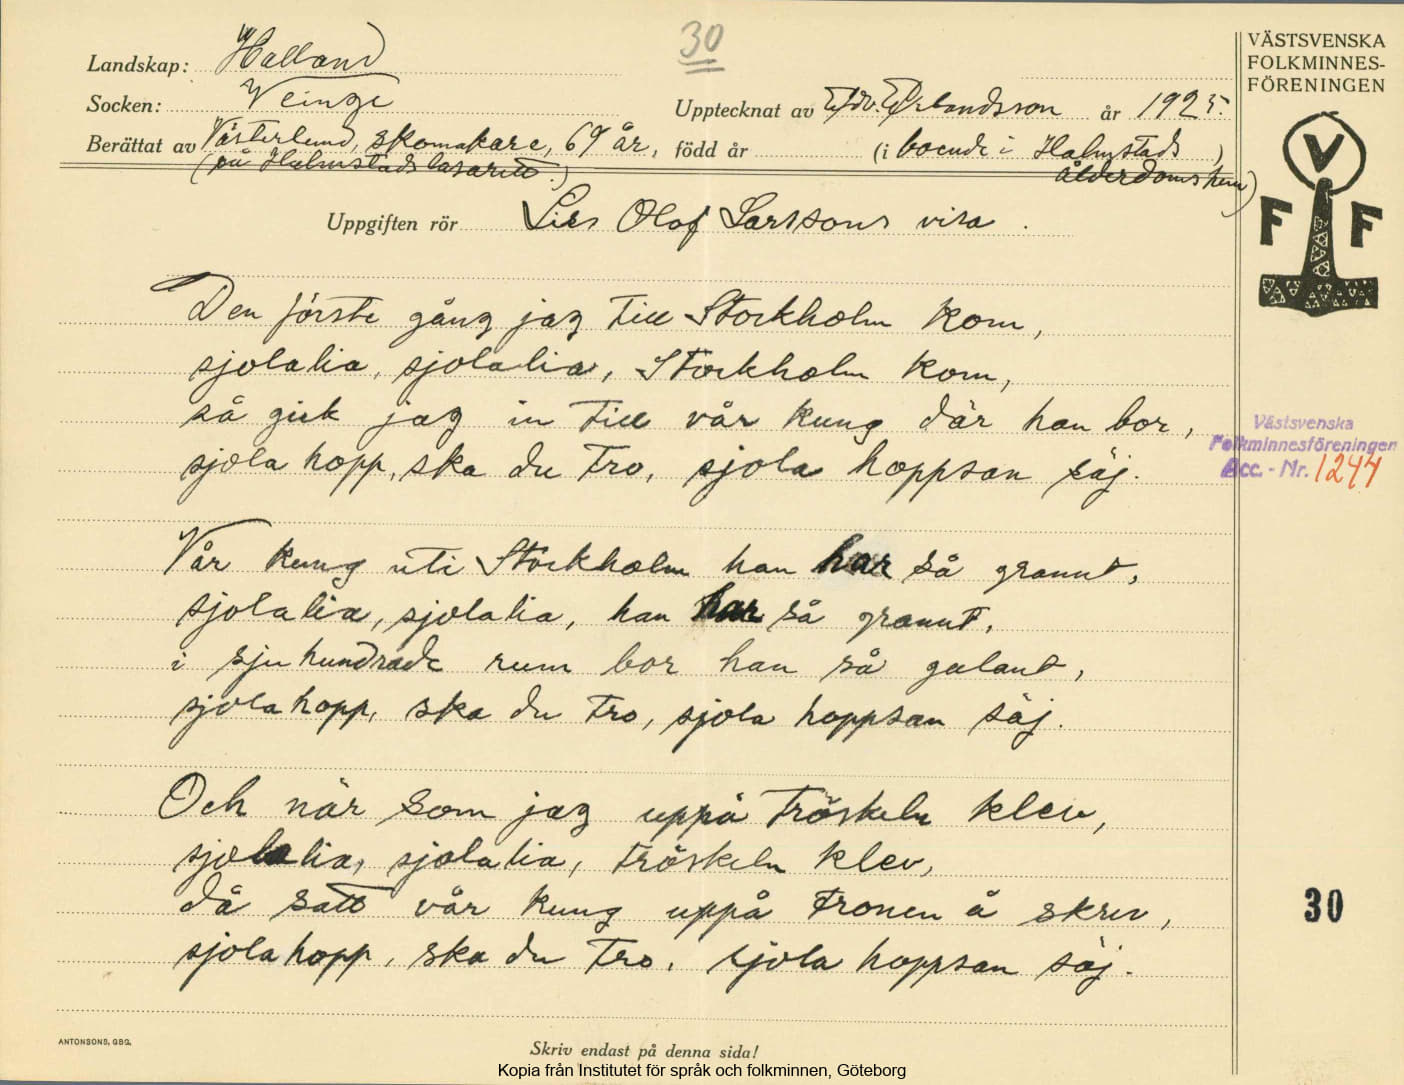 30
Landskap: Halland
Socken: Veinge
Upptecknat av Edv. Erlandsson år 1925.
Berättat av Västerlund, skomakare, 69 år, född år (i boende i Halmstads ålderdomshem)
(på Halmstads lasarett.)
Uppgiften rör Lars Olof Larssons visa.
Den förste gång jag till Stockholm kom,
sjolalia, sjolalia, Stockholm kom,
så gick jag in till vår kung där han bor,
sjola hopp, ska du tro, sjola hoppsan säj.
Vår kung uti Stockholm han har så grannt,
sjolalia, sjolalia, han har så grannt,
i sjuhundrade rum bor han så galant,
sjola hopp, ska du tro, sjola hoppsan säj.
Och när som jag uppå tröskeln klev,
sjolalia, sjolalia, tröskeln klev,
då satt vår kung uppå tronen å skrev,
sjola hopp, ska du tro, sjola hoppsan säj.
VÄSTSVENSKA
FOLKMINNES-
FÖRENINGEN
V
F F
Västsvenska
Folkminnesföreningen
Acc. - Nr. 1244
30
ANTONSONS, GBG.
Skriv endast på denna sida!
Kopia från Institutet för språk och folkminnen, Göteborg